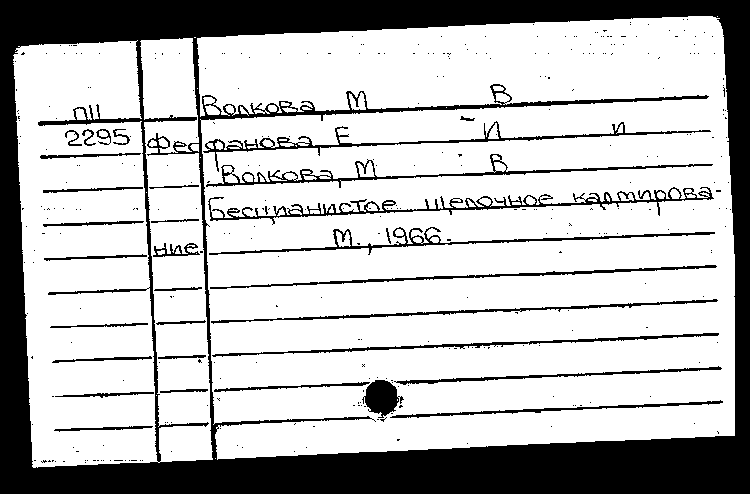 Волкова, М В
ПII
2295 Фесфанова, Е И и
Волкова, М В
Бесцианистое щелочное кадмирова-
ние. М., 1966.